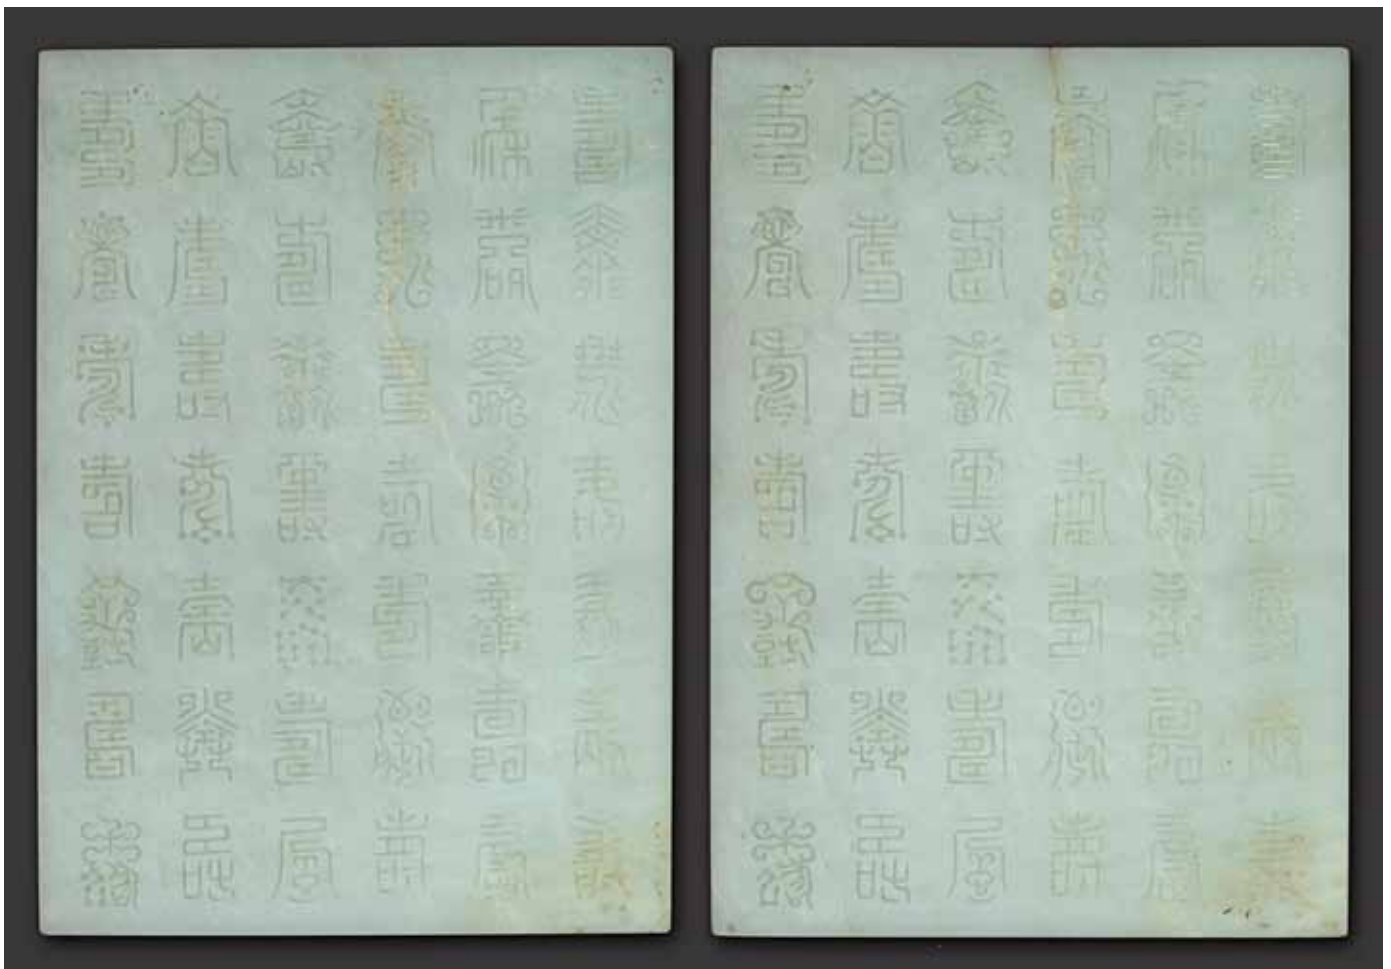 壽壽壽壽壽壽壽
壽壽壽壽壽壽壽
壽壽壽壽壽壽壽
壽壽壽壽壽壽壽
壽壽壽壽壽壽壽
壽壽壽壽壽壽壽
壽壽壽壽壽壽壽
壽壽壽壽壽壽壽
壽壽壽壽壽壽壽
壽壽壽壽壽壽壽
壽壽壽壽壽壽壽
壽壽壽壽壽壽壽